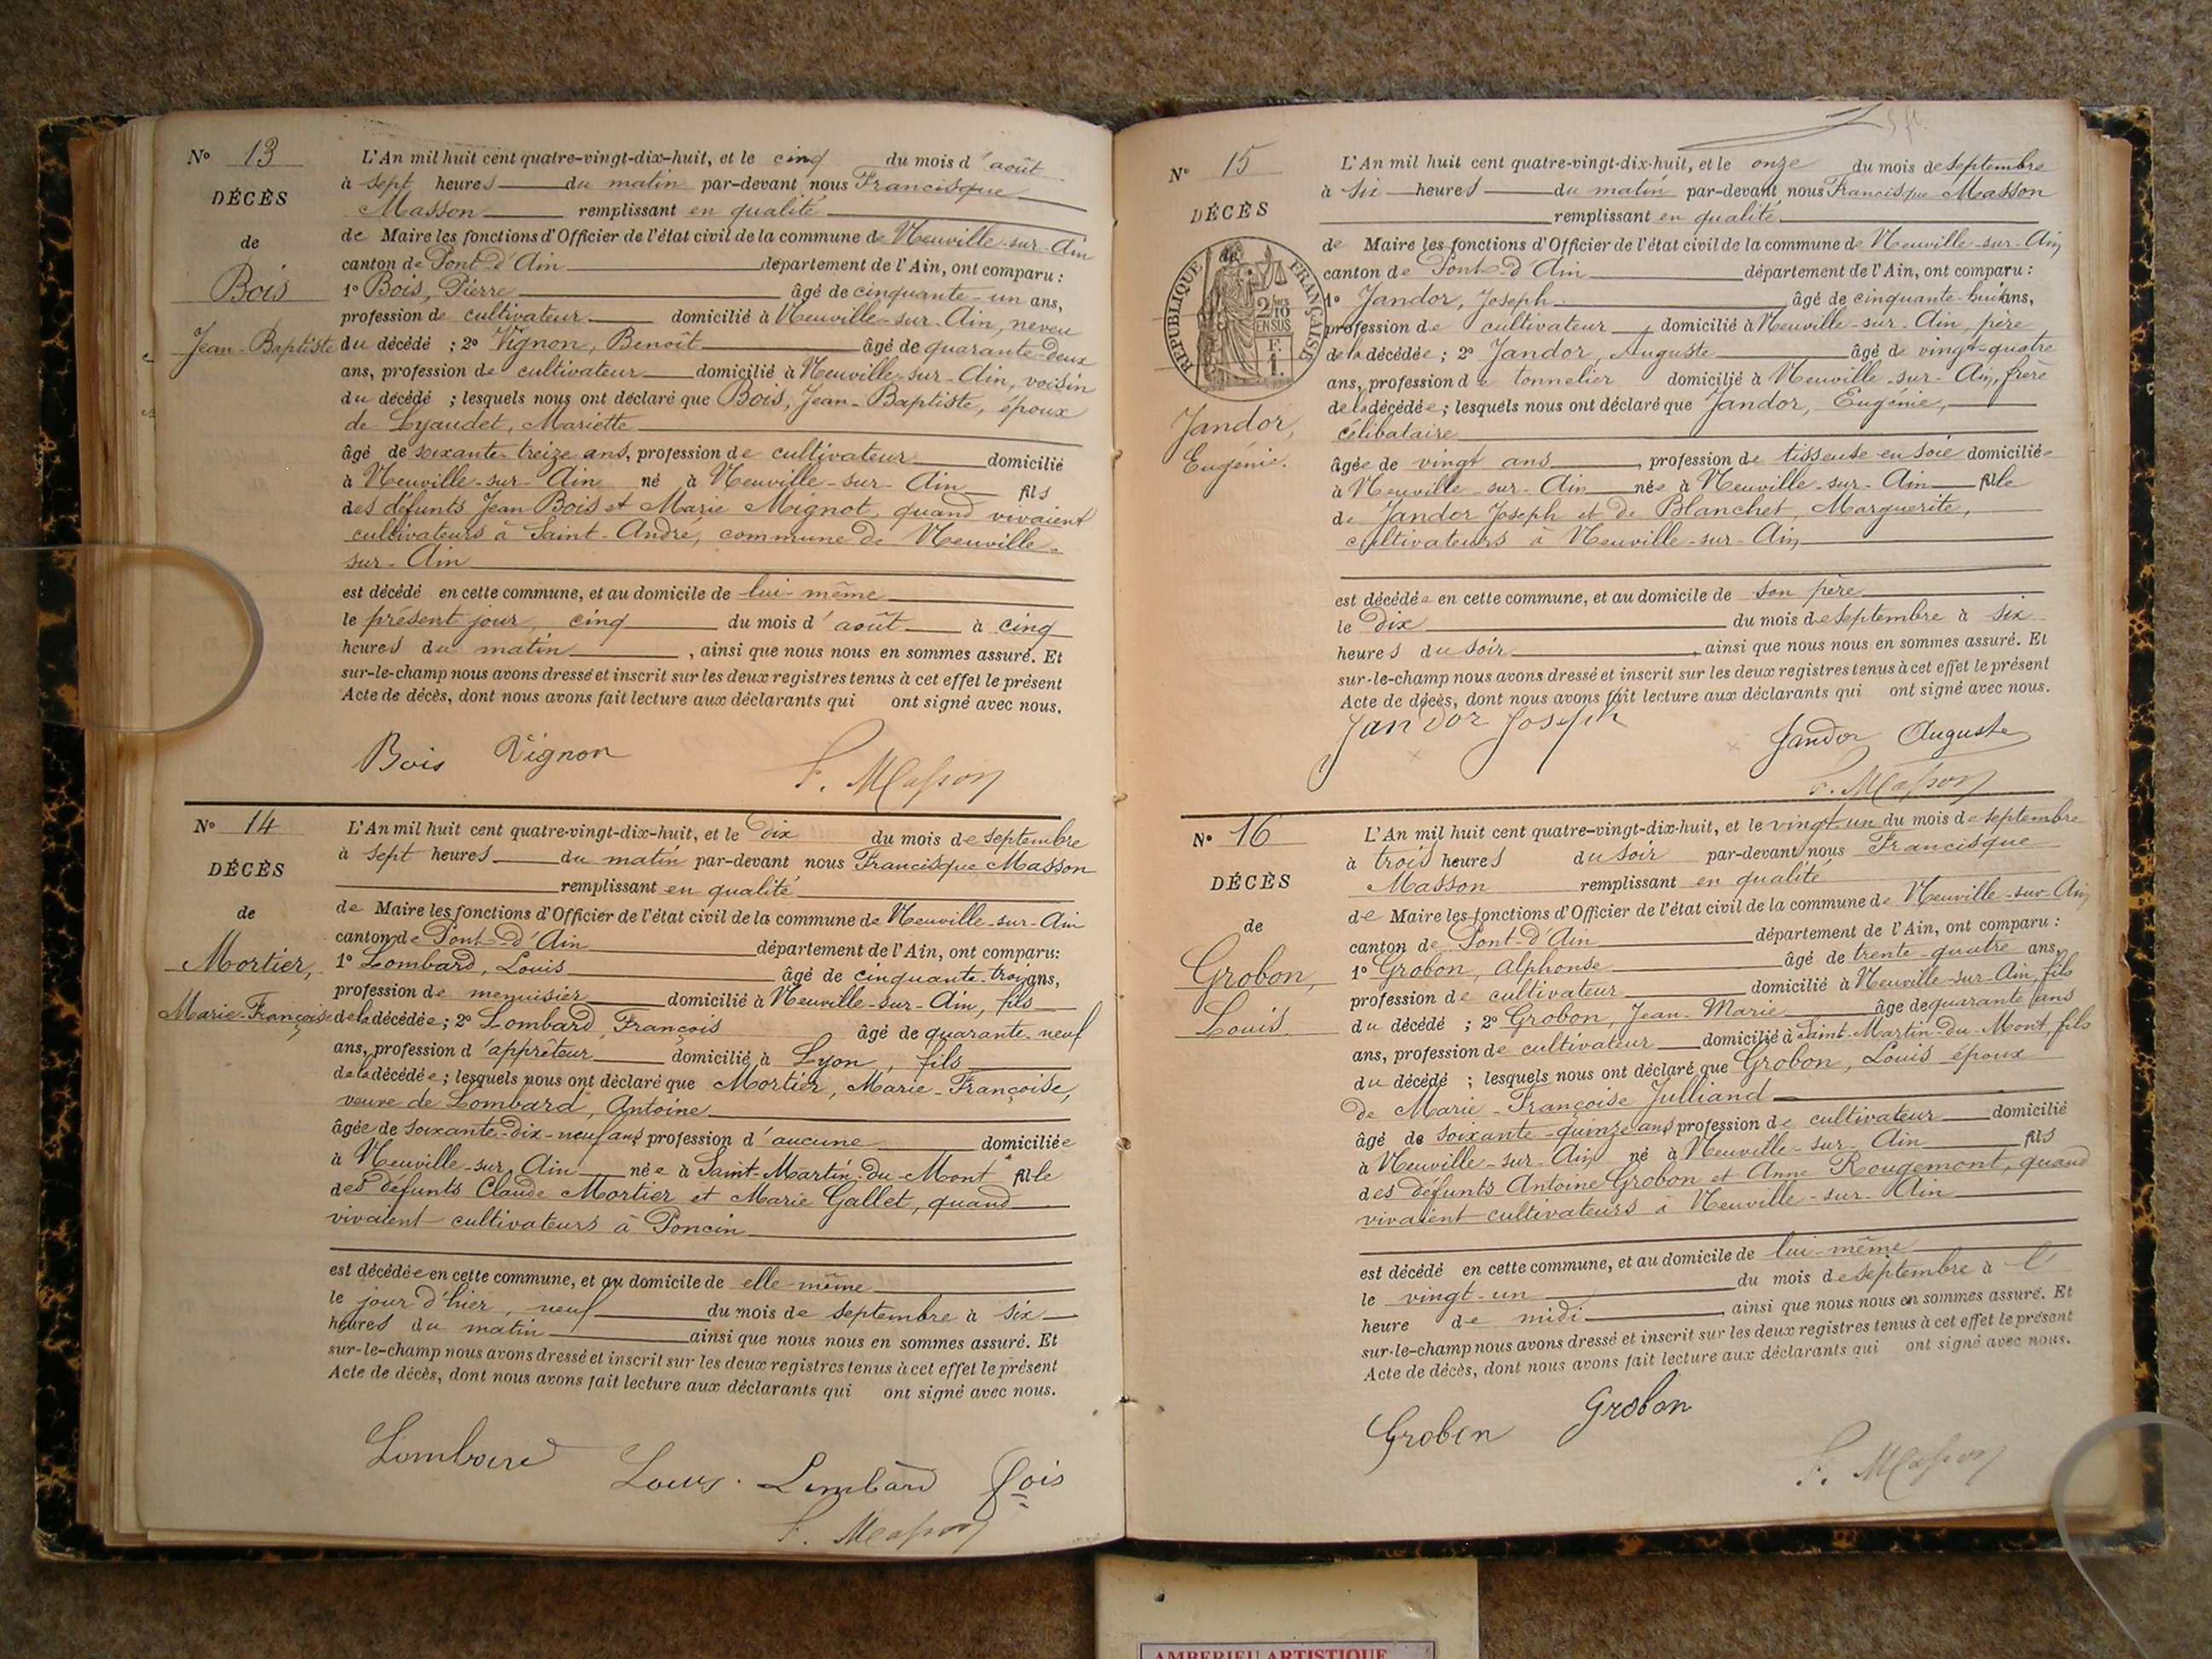 N° 13
DÉCÈS
de
Bois
Jean-Baptiste
L'An mil huit cent quatre-vingt-dix-huit, et le cinq du mois d'août
à sept heures du matin par-devant nous Francisque
Masson remplissant en qualité
de Maire les fonctions d'Officier de l'état civil de la commune de Neuville-sur-Ain
canton de Pont-d'Ain département de l'Ain, ont comparu :
1° Bois, Pierre âgé de cinquante-un ans,
profession de cultivateur domicilié à Neuville-sur-Ain, neveu
du décédé ; 2° Vignon, Benoît âgé de quarante-deux
ans, profession de cultivateur domicilié à Neuville-sur-Ain, voisin
du décédé ; lesquels nous ont déclaré que Bois, Jean-Baptiste, époux
de Lyaudet, Mariette
âgé de soixante-treize ans, profession de cultivateur domicilié
à Neuville-sur-Ain né à Neuville-sur-Ain fils
des défunts Jean Bois et Marie Mignot, quand vivaient
cultivateurs à Saint-André, commune de Neuville-
sur-Ain
est décédé en cette commune, et au domicile de lui-même
le présent jour, cinq du mois d'août à cinq
heures du matin, ainsi que nous nous en sommes assuré. Et
sur-le-champ nous avons dressé et inscrit sur les deux registres tenus à cet effet le présent
Acte de décès, dont nous avons fait lecture aux déclarants qui ont signé avec nous.
Bois Vignon F. Masson
N° 14
DÉCÈS
de
Mortier,
Marie-Françoise
L'An mil huit cent quatre-vingt-dix-huit, et le dix du mois de septembre
à sept heures du matin par-devant nous Francisque Masson
remplissant en qualité
de Maire les fonctions d'Officier de l'état civil de la commune de Neuville-sur-Ain
canton de Pont-d'Ain département de l'Ain, ont comparu:
1° Lombard, Louis âgé de cinquante-trois ans,
profession de menuisier domicilié à Neuville-sur-Ain, fils
de la décédée; 2° Lombard François âgé de quarante-neuf
ans, profession d'apprêteur domicilié à Lyon, fils
de la décédée; lesquels nous ont déclaré que Mortier, Marie-Françoise,
veuve de Lombard, Antoine
âgée de soixante-dix-neuf ans, profession d'aucune domiciliée
à Neuville-sur-Ain née à Saint-Martin-du-Mont fille
des défunts Claude Mortier et Marie Gallet, quand
vivaient cultivateurs à Poncin
est décédée en cette commune, et au domicile de elle-même
le jour d'hier, neuf du mois de septembre à six
heures du matin ainsi que nous nous en sommes assuré. Et
sur-le-champ nous avons dressé et inscrit sur les deux registres tenus à cet effet le présent
Acte de décès, dont nous avons fait lecture aux déclarants qui ont signé avec nous.
Lombard Louis. Lombard fois
F. Masson
N° 15
DÉCÈS
de
RÉPUBLIQUE FRANÇAISE
2/10
EN SUS
F.
1.
Jandor,
Eugénie.
L'An mil huit cent quatre-vingt-dix-huit, et le onze du mois de septembre
à six heures du matin par-devant nous Francisque Masson
remplissant en qualité
de Maire les fonctions d'Officier de l'état civil de la commune de Neuville-sur-Ain
canton de Pont-d'Ain département de l'Ain, ont comparu :
1° Jandor, Joseph âgé de cinquante-huit ans,
profession de cultivateur, domicilié à Neuville-sur-Ain, père
de la décédée; 2° Jandor, Auguste âgé de vingt-quatre
ans, profession de tonnelier domicilié à Neuville-sur-Ain, frère
de la décédée; lesquels nous ont déclaré que Jandor, Eugénie,
célibataire
âgée de vingt ans, profession de tisseuse en soie domiciliée
à Neuville-sur-Ain née à Neuville-sur-Ain fille
de Jandor Joseph et de Blanchet, Marguerite,
cultivateurs à Neuville-sur-Ain
est décédée en cette commune, et au domicile de son père
le dix du mois de septembre à six
heures du soir, ainsi que nous nous en sommes assuré. Et
sur-le-champ nous avons dressé et inscrit sur les deux registres tenus à cet effet le présent
Acte de décès, dont nous avons fait lecture aux déclarants qui ont signé avec nous.
Jandor Joseph Jandor Auguste
F. Masson
N° 16
DÉCÈS
de
Grobon,
Louis
L'An mil huit cent quatre-vingt-dix-huit, et le vingt-un du mois de septembre
à trois heures du soir par-devant nous Francisque
Masson remplissant en qualité
de Maire les fonctions d'Officier de l'état civil de la commune de Neuville-sur-Ain
canton de Pont-d'Ain département de l'Ain, ont comparu :
1° Grobon, Alphonse âgé de trente-quatre ans,
profession de cultivateur domicilié à Neuville-sur-Ain, fils
du décédé ; 2° Grobon, Jean-Marie âgé de quarante ans
ans, profession de cultivateur domicilié à Saint-Martin-du-Mont, fils
du décédé ; lesquels nous ont déclaré que Grobon, Louis époux
de Marie-Françoise Julliand
âgé de soixante-quinze ans, profession de cultivateur domicilié
à Neuville-sur-Ain né à Neuville-sur-Ain fils
des défunts Antoine Grobon et Anne Rougemont, quand
vivaient cultivateurs à Neuville-sur-Ain
est décédé en cette commune, et au domicile de lui-même
le vingt-un du mois de septembre à l'
heure de midi, ainsi que nous nous en sommes assuré. Et
sur-le-champ nous avons dressé et inscrit sur les deux registres tenus à cet effet le présent
Acte de décès, dont nous avons fait lecture aux déclarants qui ont signé avec nous.
Grobon Grobon
F. Masson
AMBERIEU ARTISTIQUE